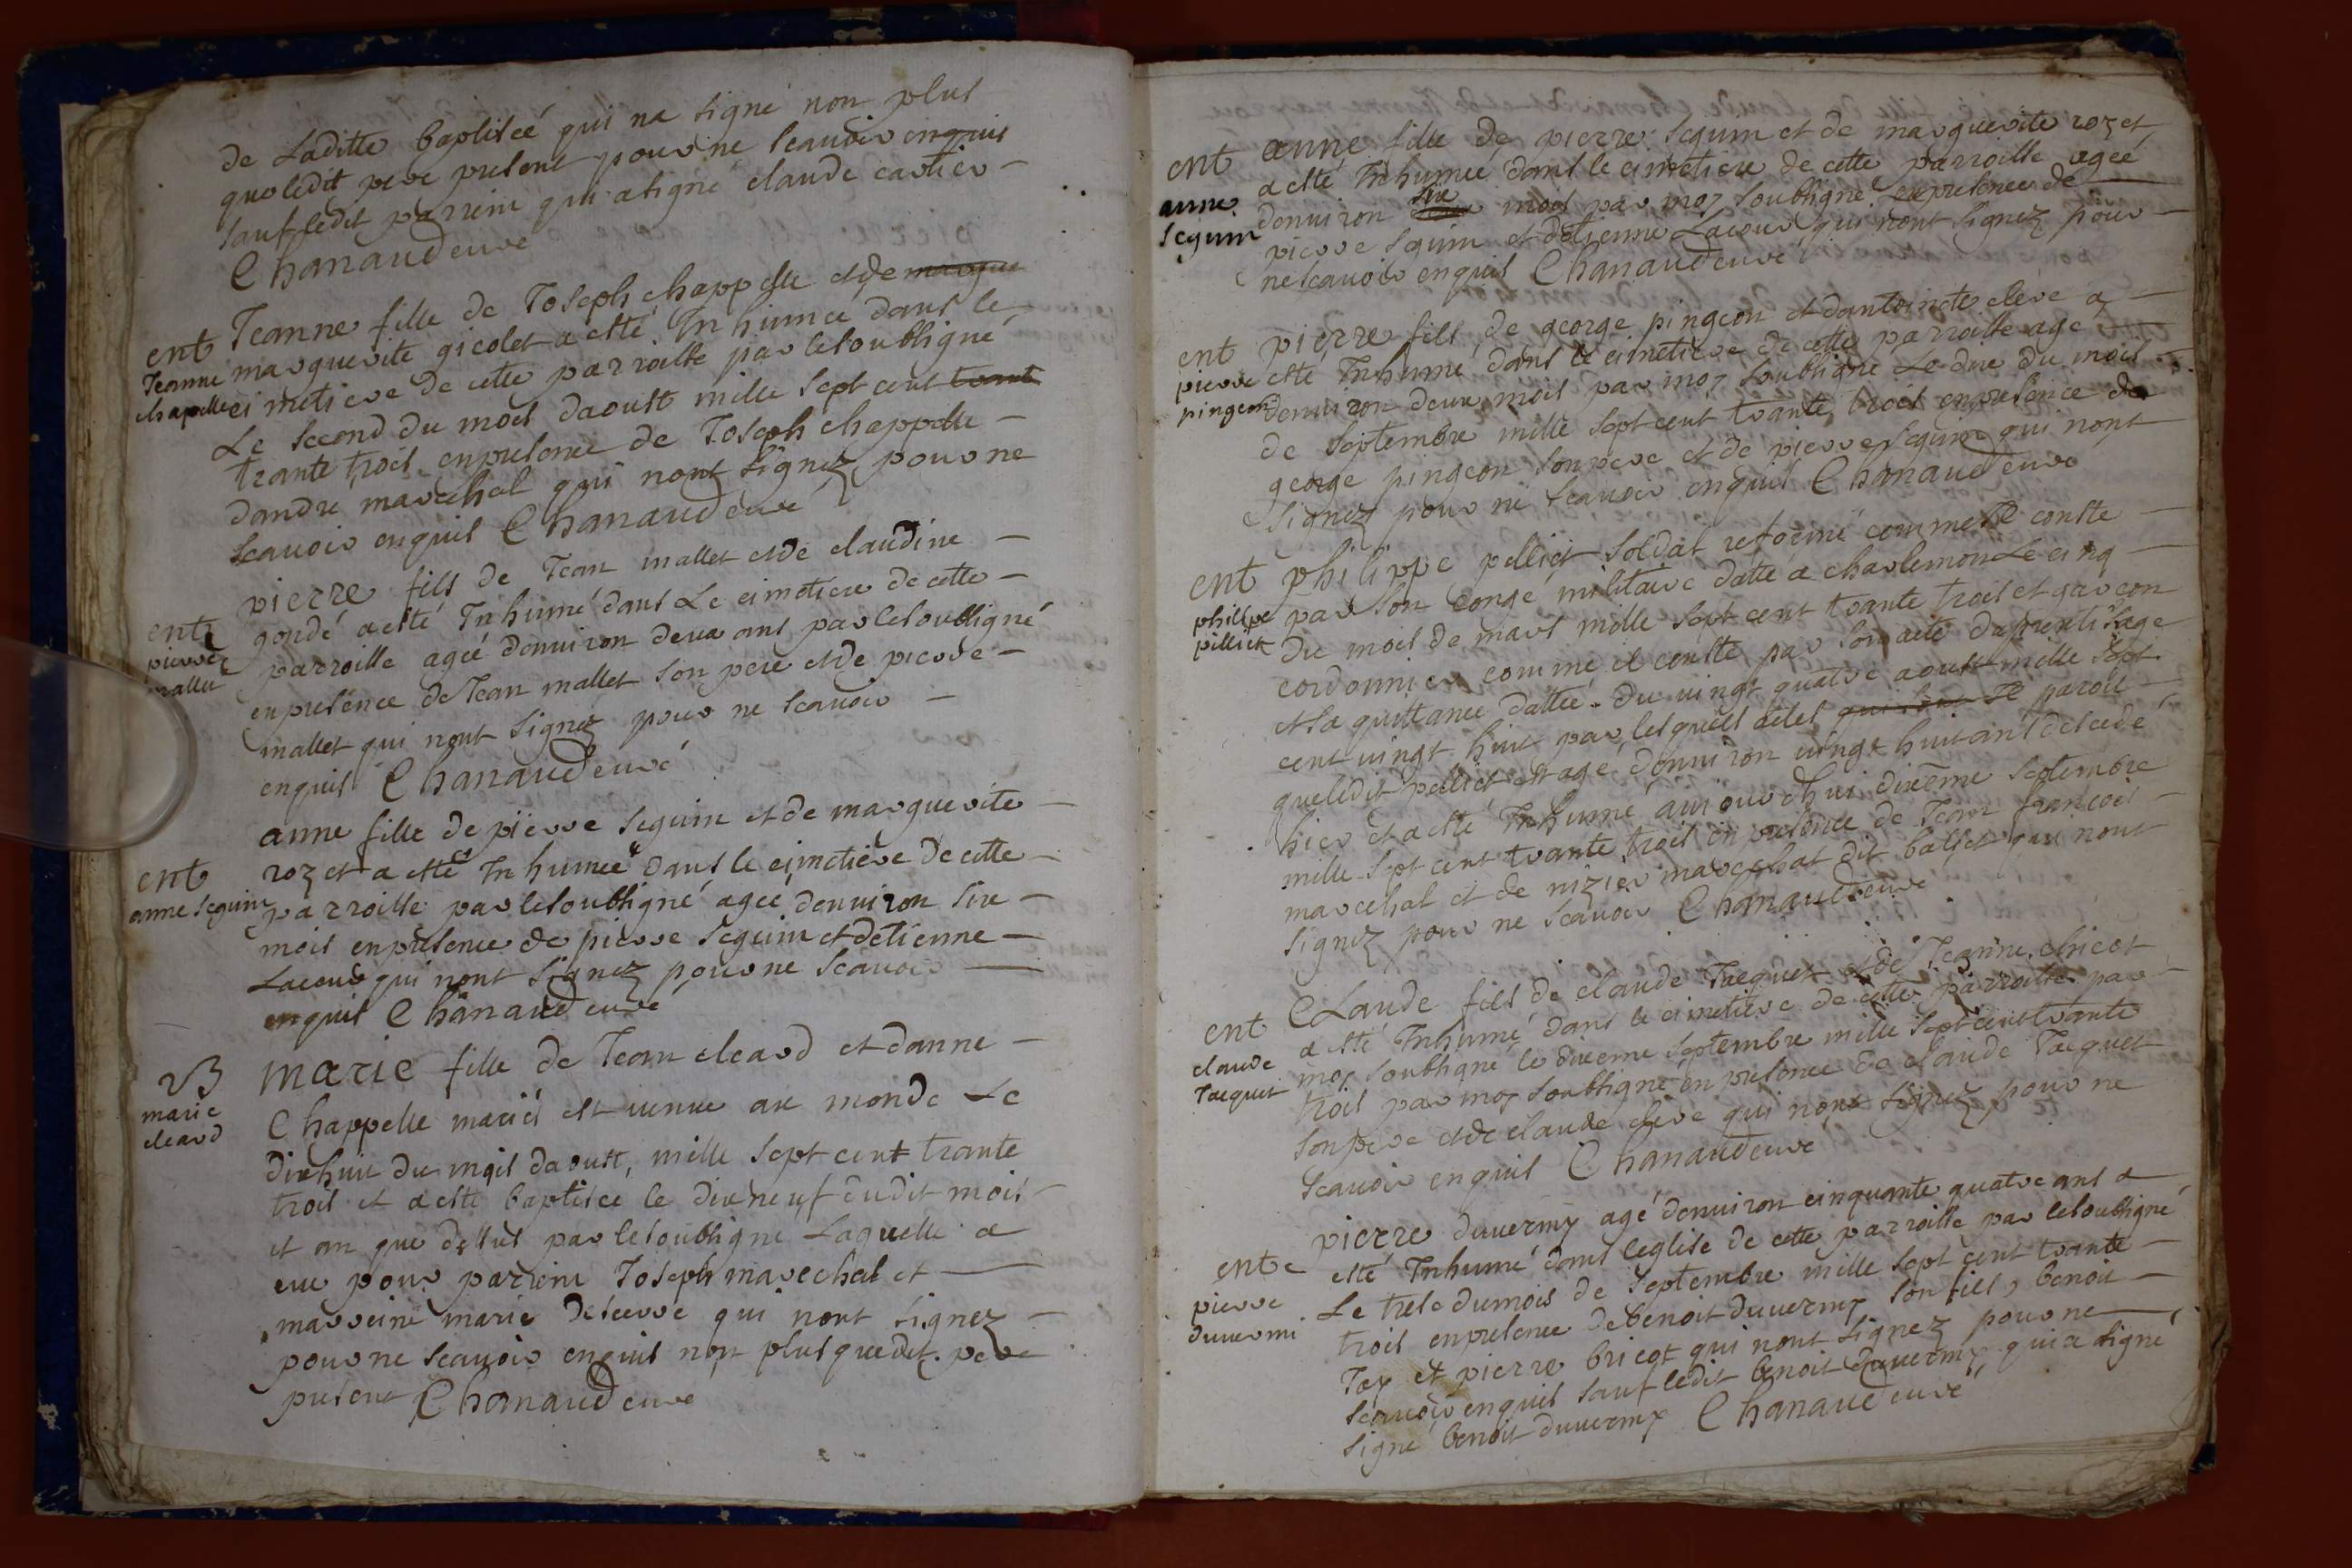 de Laditte baptiseé qui na signé non plus
que ledit pere present pour ne scauoir enquis
sauf ledit parrein qui a signé claude cartier
Chanaudeuve
ent Jeanne fille de Joseph chappelle et de margue
Jeanne chapelle
marguerite gicolet a esté Inhumeé dans le
cimetiere de cette parroisse par le soubsigné
Le second du mois daoust mille sept cent trant
trante trois enpresence de Joseph chappelle
dandre marechal qui nont signez pour ne
scauoir enquis Chanaudeuve
ent pierre mallet
pierre fils de Jean mallet et de claudine
gondé a esté Inhumé dans Le cimetiere de cette
parroisse ageé denuiron deux ans par le soubsigné
enpresence de Jean mallet son pere et de pierre
mallet qui nont signez pour ne scauoir
enquis Chanaudeuvé
ent anne seguin
anne fille de pierre seguin et de marguerite
rozet a esté Inhumeé dans le cimetiere de cette
parroisse par le soubsigné ageé denuiron six
mois enpresence de pierre seguin et detienne
Lacour qui nont signez pour ne scauoir
enquis Chanaudeuvé
B marie cleard
marie fille de Jean cleard et danne
Chappelle mariés est venue au monde Le
dixhuit du mois daoust, mille sept cent trante
trois et a esté baptisee le dixneuf dudit mois
et an que dessus par le soubsigné Laquelle a
eue pour parrein Joseph marechal et
marreine marie deserre qui nont signez
pour ne scauoir enquis non plus quedit pere
present Chanaudeuve
ent anne seguin
anne fille de pierre seguin et de marguerite rozet
a esté Inhumeé dans le cimetiere de cette parroisse ageé
denuiron six mois par moy soubsigné enpresence de
pierre seguin et detienne Lacour qui nont signez pour
ne scauoir enquis Chanaudeuvé
ent pierre pingeon
pierre fils de george pingeon et dantoinete cleve a
esté Inhumé dans le cimetiere de cette parroisse agé
denuiron deux mois par moy soubsigné Le due du mois
de septembre mille sept cent trante trois enpresence de
george pingeon son pere et de pierre seguin qui nont
signez pour ne scauoir enquis Chanaudeuve
ent philippe pilliet
philippe pelliet soldat reformé comme Il conste
par son congé militaire datté a charlemon Le cinq
du mois de mars mille sept cent trante trois et garcon
cordonnier comme il conste par son acte daprentisage
et sa quittance dattée du vingt quatre aoust mille sept
cent vingt huit par lesquels actes qui sont Il paroit
queledit pelliet est agé denuiron vingt huit ans descedé
hier et a esté Inhumé auiourdhui dixeme septembre
mille sept cent trante trois en presence de Jean francois
marechal et de nizier marechal dit baliet qui nont
signez pour ne scauoir Chanaudeuve
ent claude Jacquet
Claude fils de claude Jacquet et de Jeanne chicot
a esté Inhumé dans le cimetiere de cette parroisse par
moy soubsigné le dixeme septembre mille sept cent trante
trois par moy soubsigné en presence de claude Jacquet
son pere et de claude cleve qui nont signez pour ne
scauoir enquis Chanaudeuve
ent pierre duuermi
pierre duuermy agé denuiron cinquante quatre ans a
esté Inhumé dans leglise de cette parroisse par le soubsigné
Le trese dumois de septembre mille sept cent trante
trois enpresence de benoit duuermy son fils, benoit
Jay et pierre bricot qui nont signez pour ne
scauoir enquis sauf ledit benoit duuermy qui a signé
signé benoit duuermy Chanaudeuvé